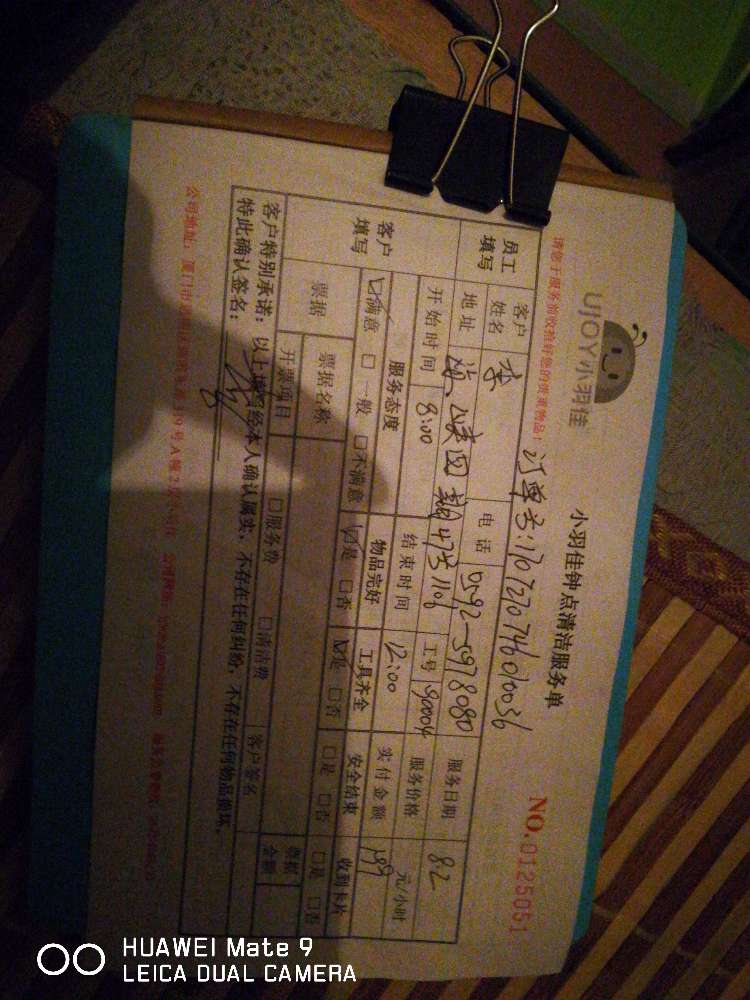 UJOY小羽佳
小羽佳钟点清洁服务单
NO.0125051
请您于服务前收拾好您的贵重物品!
订单号:1707270746010036
员工填写
客户姓名 李 电话 0592-5978080 服务日期 8.2
地址 473 1106 工号 90004 服务价格 元/小时
开始时间 8:00 结束时间 12:00 实付金额 199
客户填写
服务态度 物品完好 工具齐全 安全结束 收到卡片
☑满意 □一般 □不满意 ☑是 □否 ☑是 □否 □是 □否 □是 □否
票据 票据名称 票据金额
开票项目 □服务费 □清洁费 客户签名
客户特别承诺:以上填写经本人确认属实,不存在任何纠纷,不存在任何物品损坏,
特此确认签名:
公司地址:厦门市
HUAWEI Mate 9
LEICA DUAL CAMERA